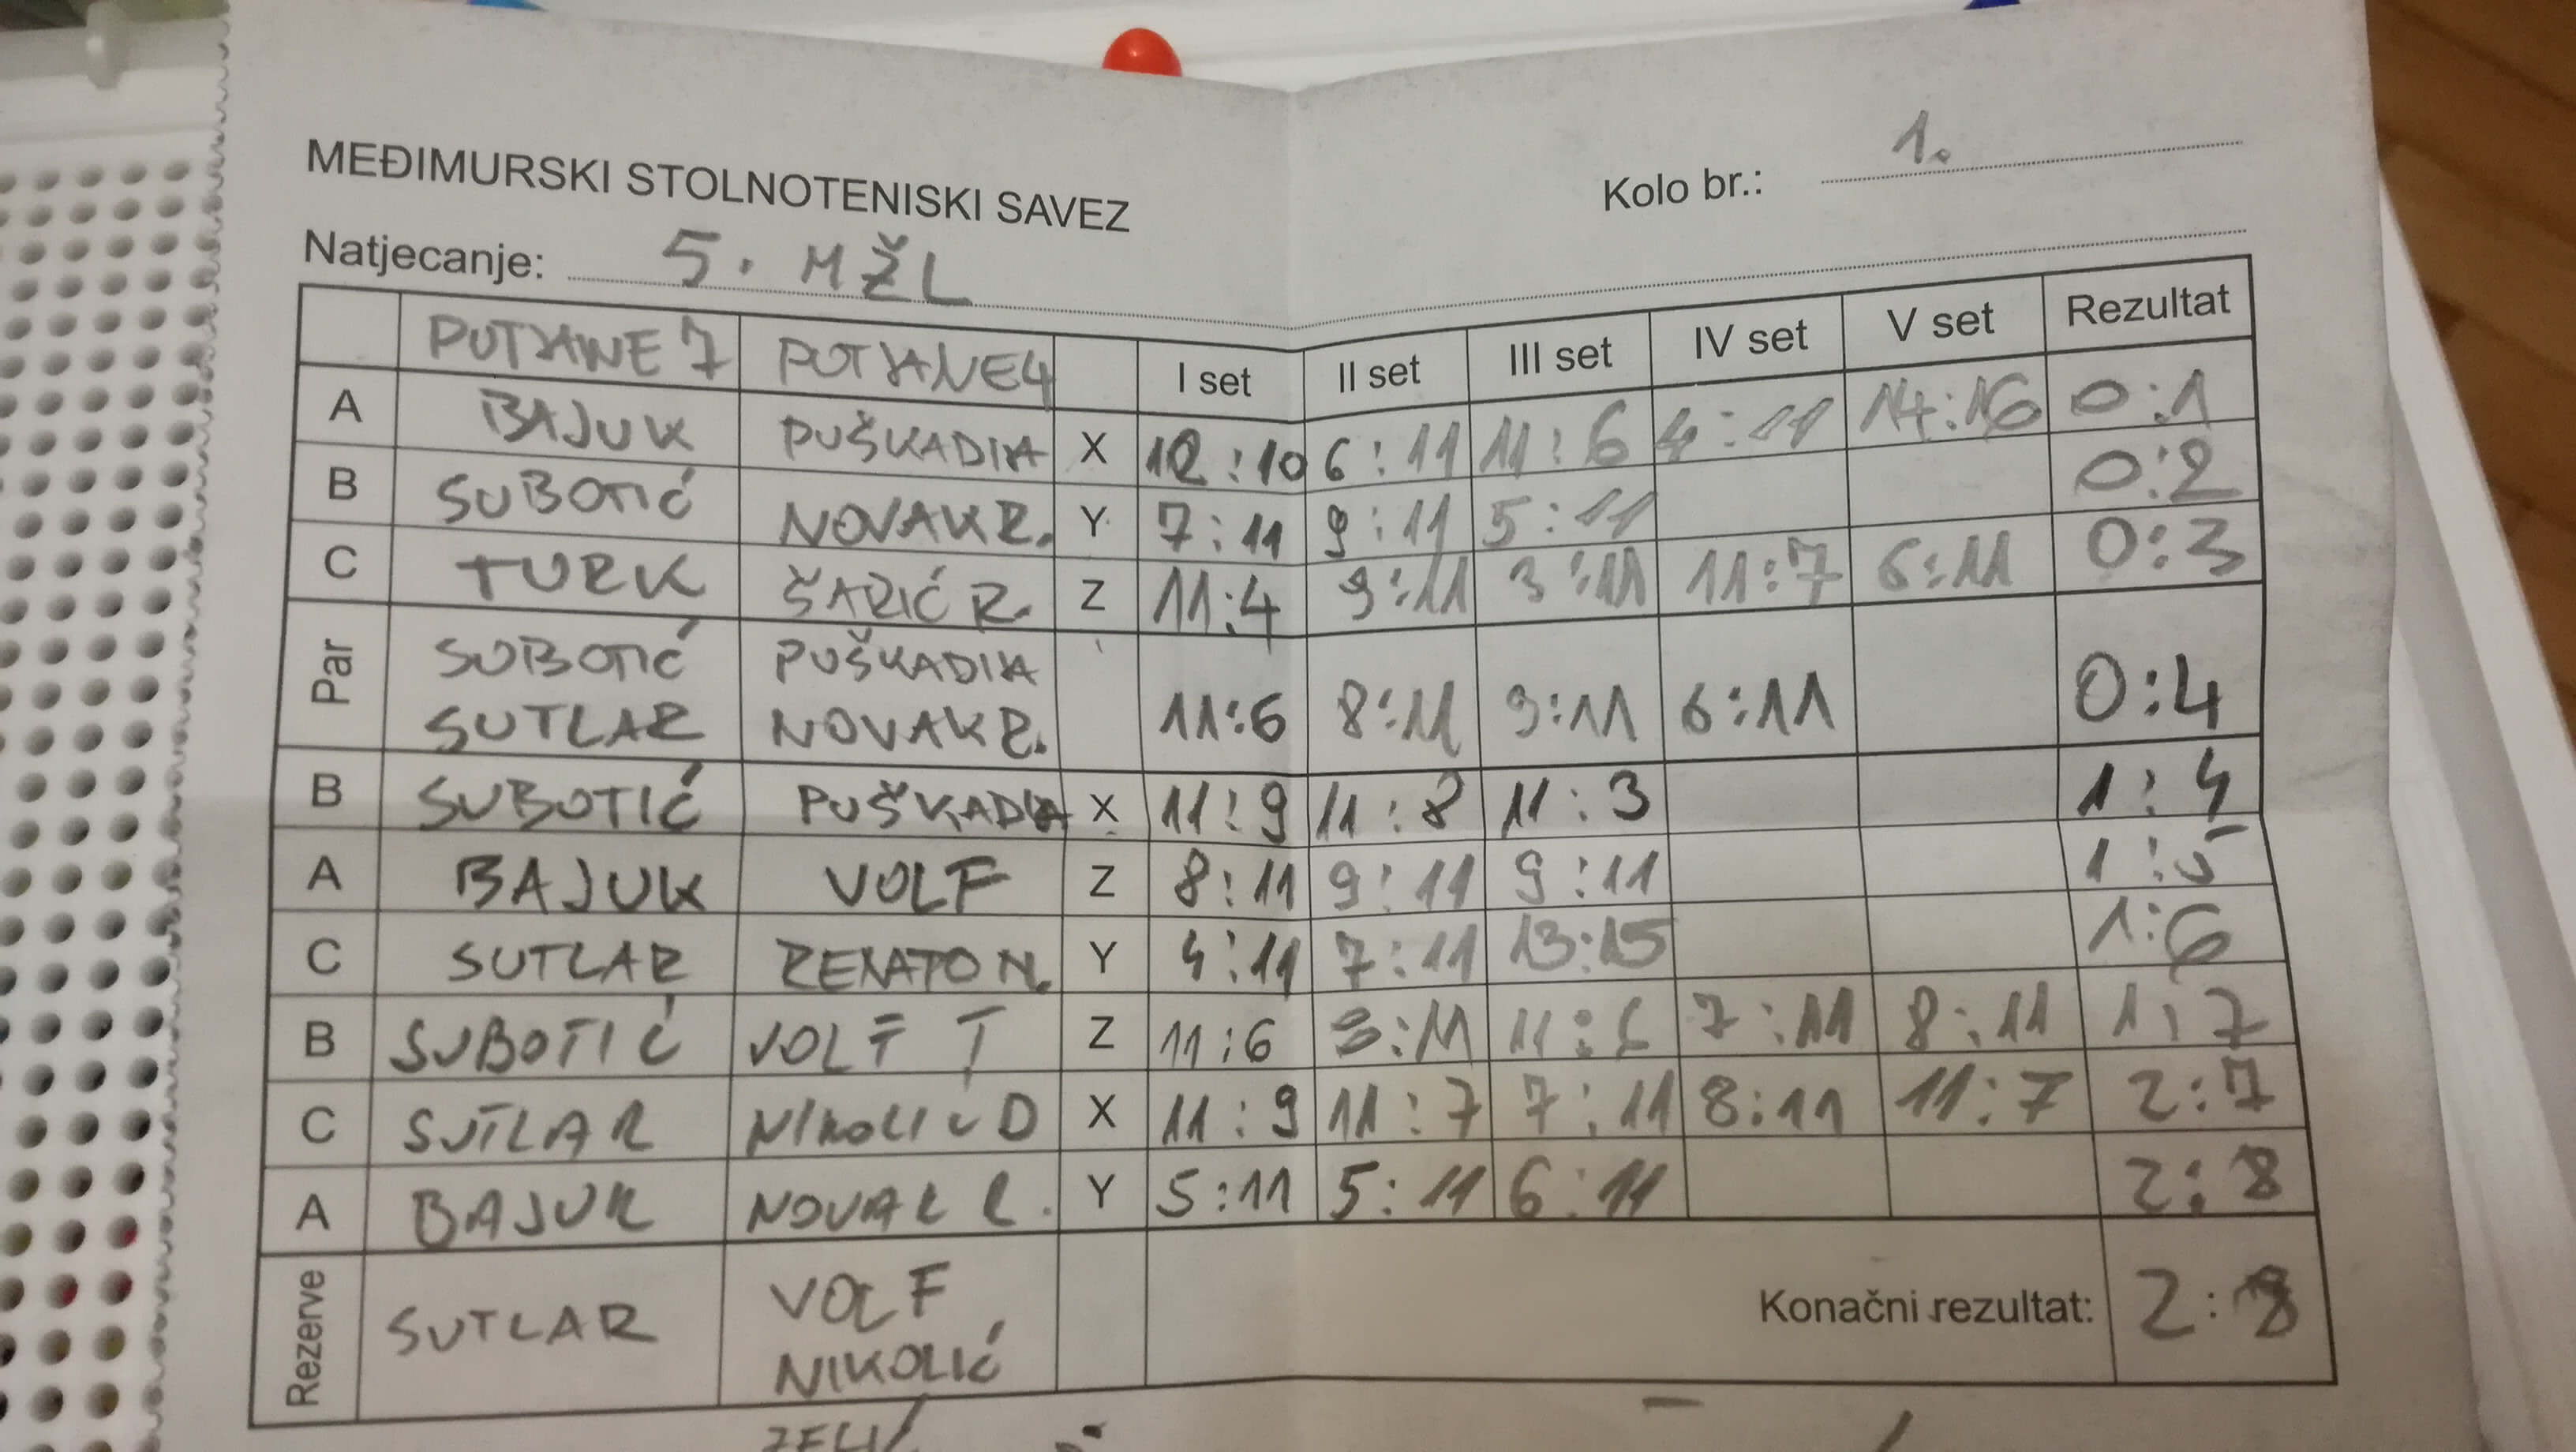 MEĐIMURSKI STOLNOTENISKI SAVEZ
Kolo br.: 1.
Natjecanje: 5. MŽL
PUTJANE 7 PUTJANE 4 I set II set III set IV set V set Rezultat
A BAJUK PUŠKADIJA X 12:10 6:11 11:6 4:11 14:16 0:1
B SUBOTIĆ NOVAK R. Y 7:11 9:11 5:11 0:2
C TURK ŠARIĆ R. Z 11:4 9:11 3:11 11:7 6:11 0:3
Par SUBOTIĆ PUŠKADIJA
SUTLAR NOVAK R. 11:6 8:11 9:11 6:11 0:4
B SUBOTIĆ PUŠKADIJA X 11:9 11:8 11:3 1:4
A BAJUK VOLF Z 8:11 9:11 9:11 1:5
C SUTLAR RENATO N. Y 4:11 7:11 13:15 1:6
B SUBOTIĆ VOLF T Z 11:6 3:11 11:6 7:11 8:11 1:7
C SUTLAR NIKOLIĆ D X 11:9 11:7 7:11 8:11 11:7 2:7
A BAJUK NOVAK R. Y 5:11 5:11 6:11 2:8
Rezerve SUTLAR VOLF
NIKOLIĆ
Konačni rezultat: 2:8